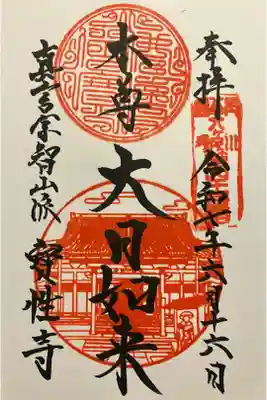 奉拝 令和七年六月十六日
本尊 大日如来
真言宗智山派 寳性寺